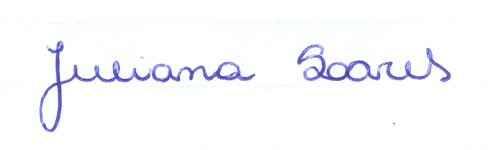 Juliana Soares